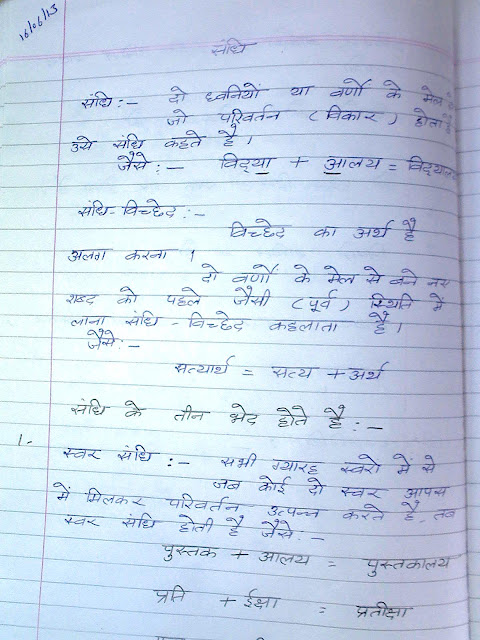 16/06/13
संधि
संधि :- दो ध्वनियों या वर्णों के मेल से
जो परिवर्तन (विकार) होता है
उसे संधि कहते हैं।
जैसे :- विद्या + आलय = विद्यालय
संधि-विच्छेद :-
विच्छेद का अर्थ है
अलग करना ।
दो वर्णों के मेल से बने नए
शब्द को पहले जैसी (पूर्व) स्थिति में
लाना संधि-विच्छेद कहलाता है।
जैसे :-
सत्यार्थ = सत्य + अर्थ
संधि के तीन भेद होते हैं :-
1.-
स्वर संधि :- सभी ग्यारह स्वरो में से
जब कोई दो स्वर आपस
में मिलकर परिवर्तन उत्पन्न करते है, तब
स्वर संधि होती है जैसे :-
पुस्तक + आलय = पुस्तकालय
प्रति + ईक्षा = प्रतीक्षा